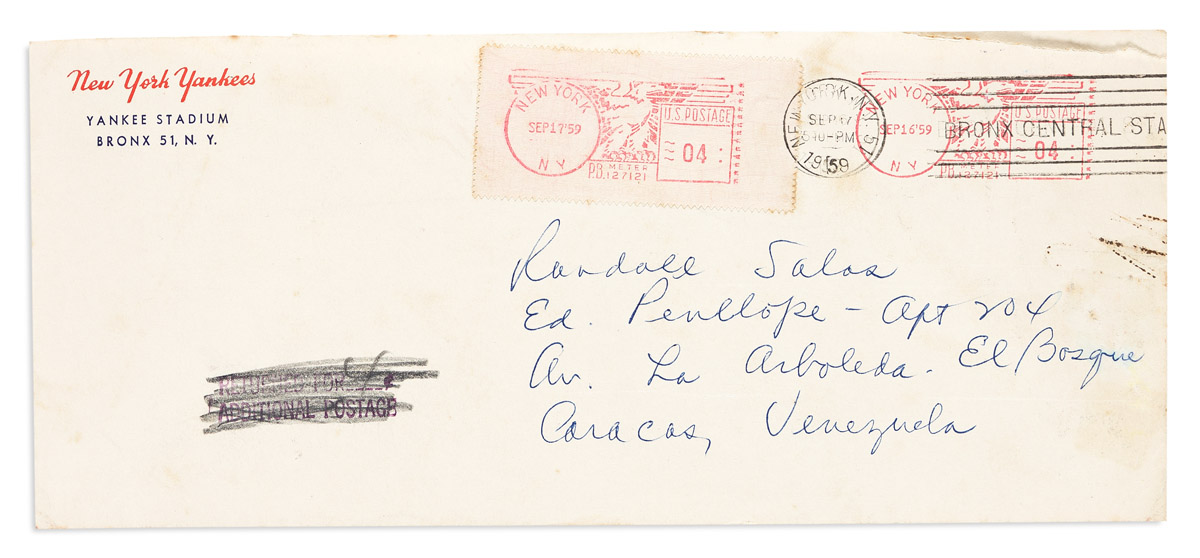 New York Yankees
YANKEE STADIUM
BRONX 51, N. Y.
NEW YORK
SEP 17 '59
N Y
U.S. POSTAGE
04
P.B. METER
127121
NEW YORK, N.Y. 57
SEP 17
PM
1959
NEW YORK
SEP 16 '59
N Y
U.S. POSTAGE
04
P.B. METER
127121
BRONX CENTRAL STA
Randall Salas
Ed. Penllope - Apt 204
Av. La Arboleda. El Bosque
Caracas, Venezuela
RETURNED FOR
ADDITIONAL POSTAGE